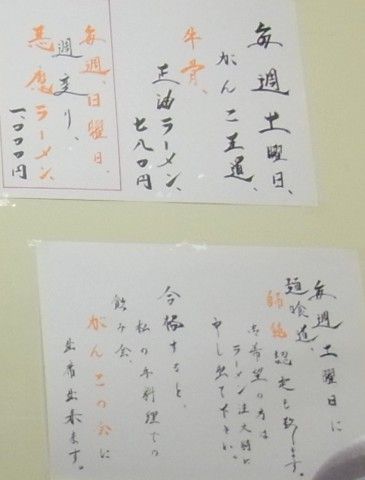 毎週土曜日、
がんこ王道、
牛骨、
正油ラーメン、
七八〇円
毎週、日曜日、
週変り、
悪魔ラーメン、
一、〇〇〇円
毎週土曜日に
麺喰道、
師範認定も致します。
御希望の方は
ラーメン注文時に
申し出て下さい。
合格すると、
私の手料理での
飲み会、
がんこの会に
出席出来ます。